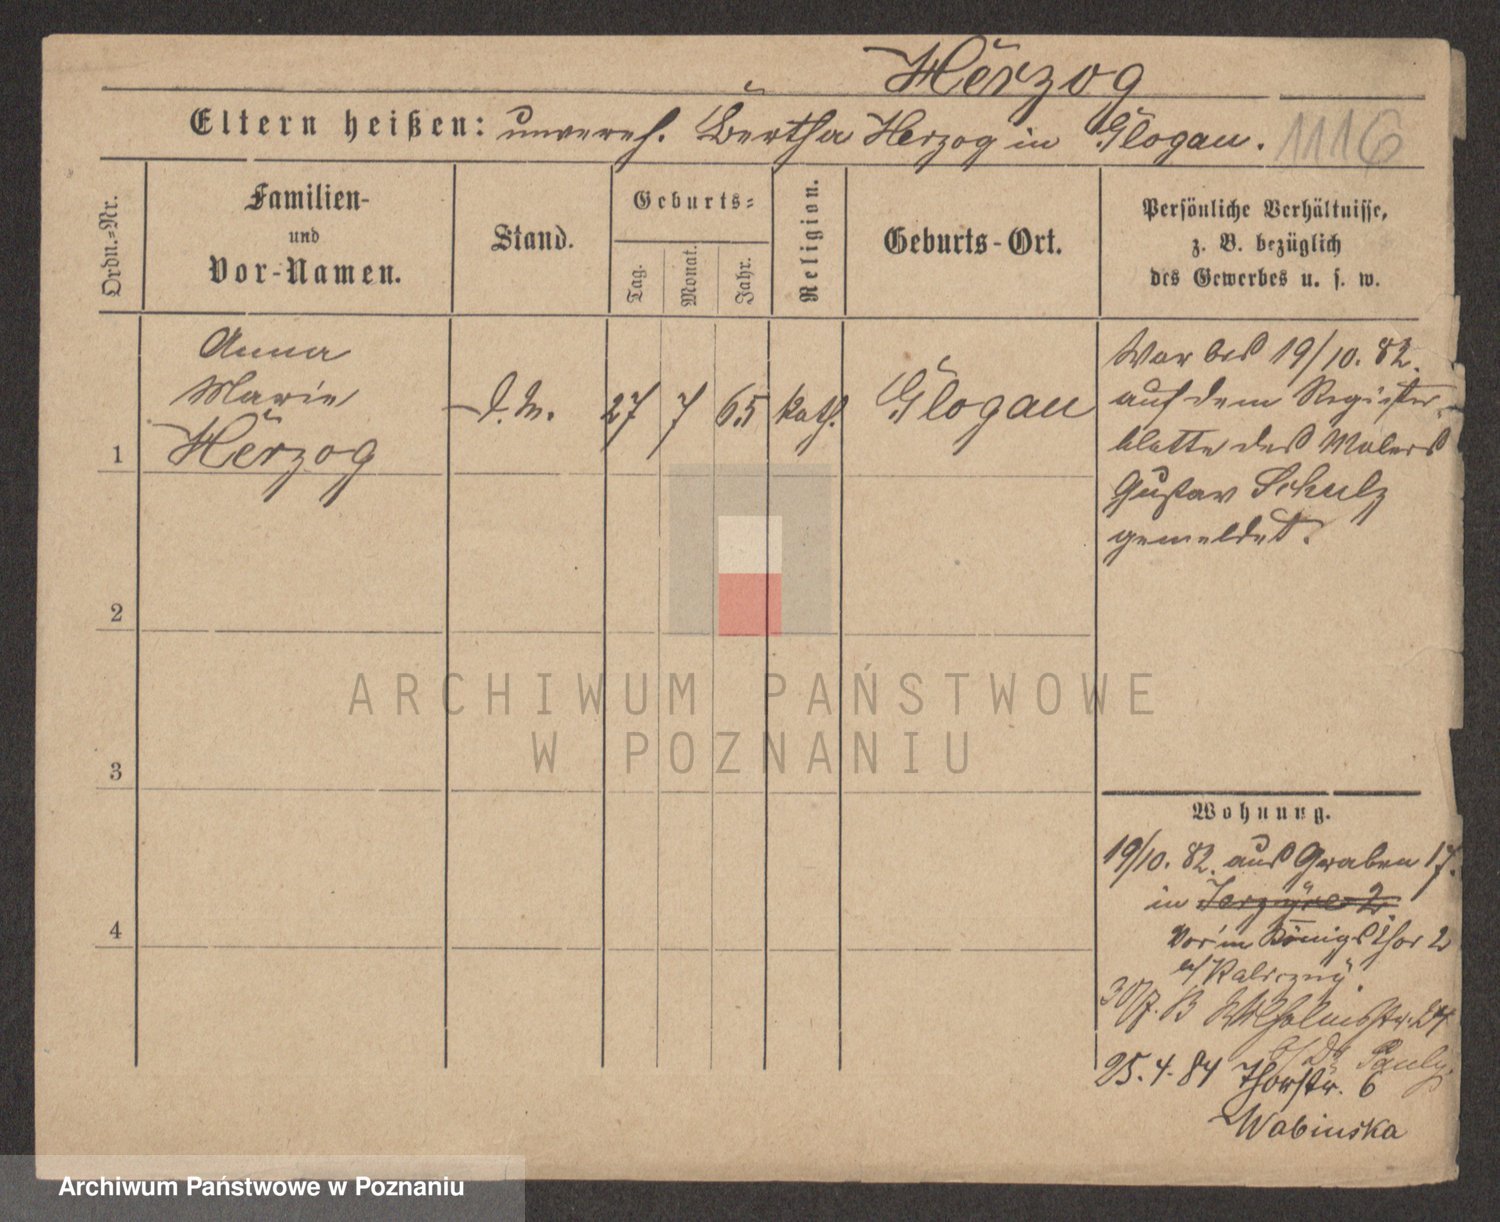 Herzog
Eltern heißen: unvereh. Bertha Herzog in Glogau. 1116
Ordn.-Nr.
Familien-
und
Vor-Namen.
Stand.
Geburts-
Tag.
Monat.
Jahr.
Religion.
Geburts-Ort.
Persönliche Verhältnisse,
z. B. bezüglich
des Gewerbes u. s. w.
1
Anna
Marie
Herzog
D. M.
27
7
65
kath.
Glogau
War bis 19/10. 82.
auf dem Register-
blatte des Malers
Gustav Schulz
gemeldet.
2
3
4
ARCHIWUM PAŃSTWOWE
W POZNANIU
Wohnung.
19/10. 82. aus Graben 17.
in 
Vor'm Königsthor 2
30/7. B Wilhelmstr. 24
b/ Dr. Pauly.
25. 4. 84 Thorstr. 6
Wabinska
Archiwum Państwowe w Poznaniu